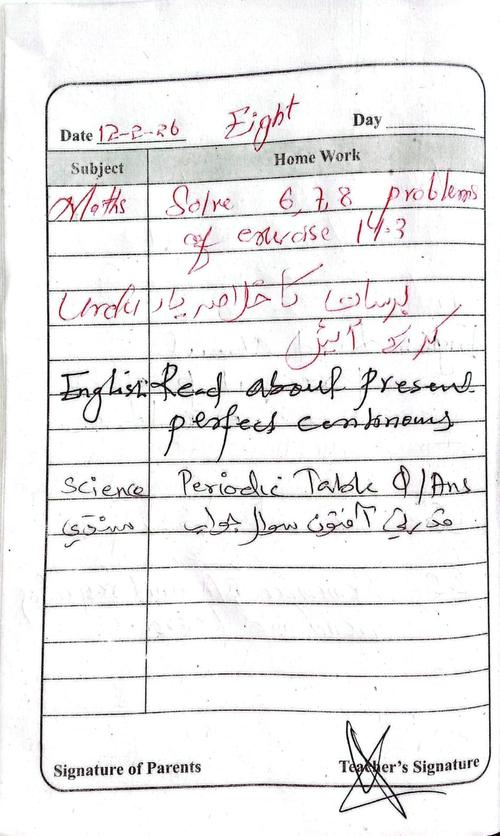 Eight
Date 12-2-26 Day
Subject Home Work
Maths Solve 6, 7, 8 problems
of exercise 14.3
Urdu برسات کا خلاصہ یاد
کرکے آئیں
English: Read about Present
perfect continous
Science Periodic Table Q/Ans
سنڌي قدرتي آفتون سوال جواب
Signature of Parents Teacher's Signature